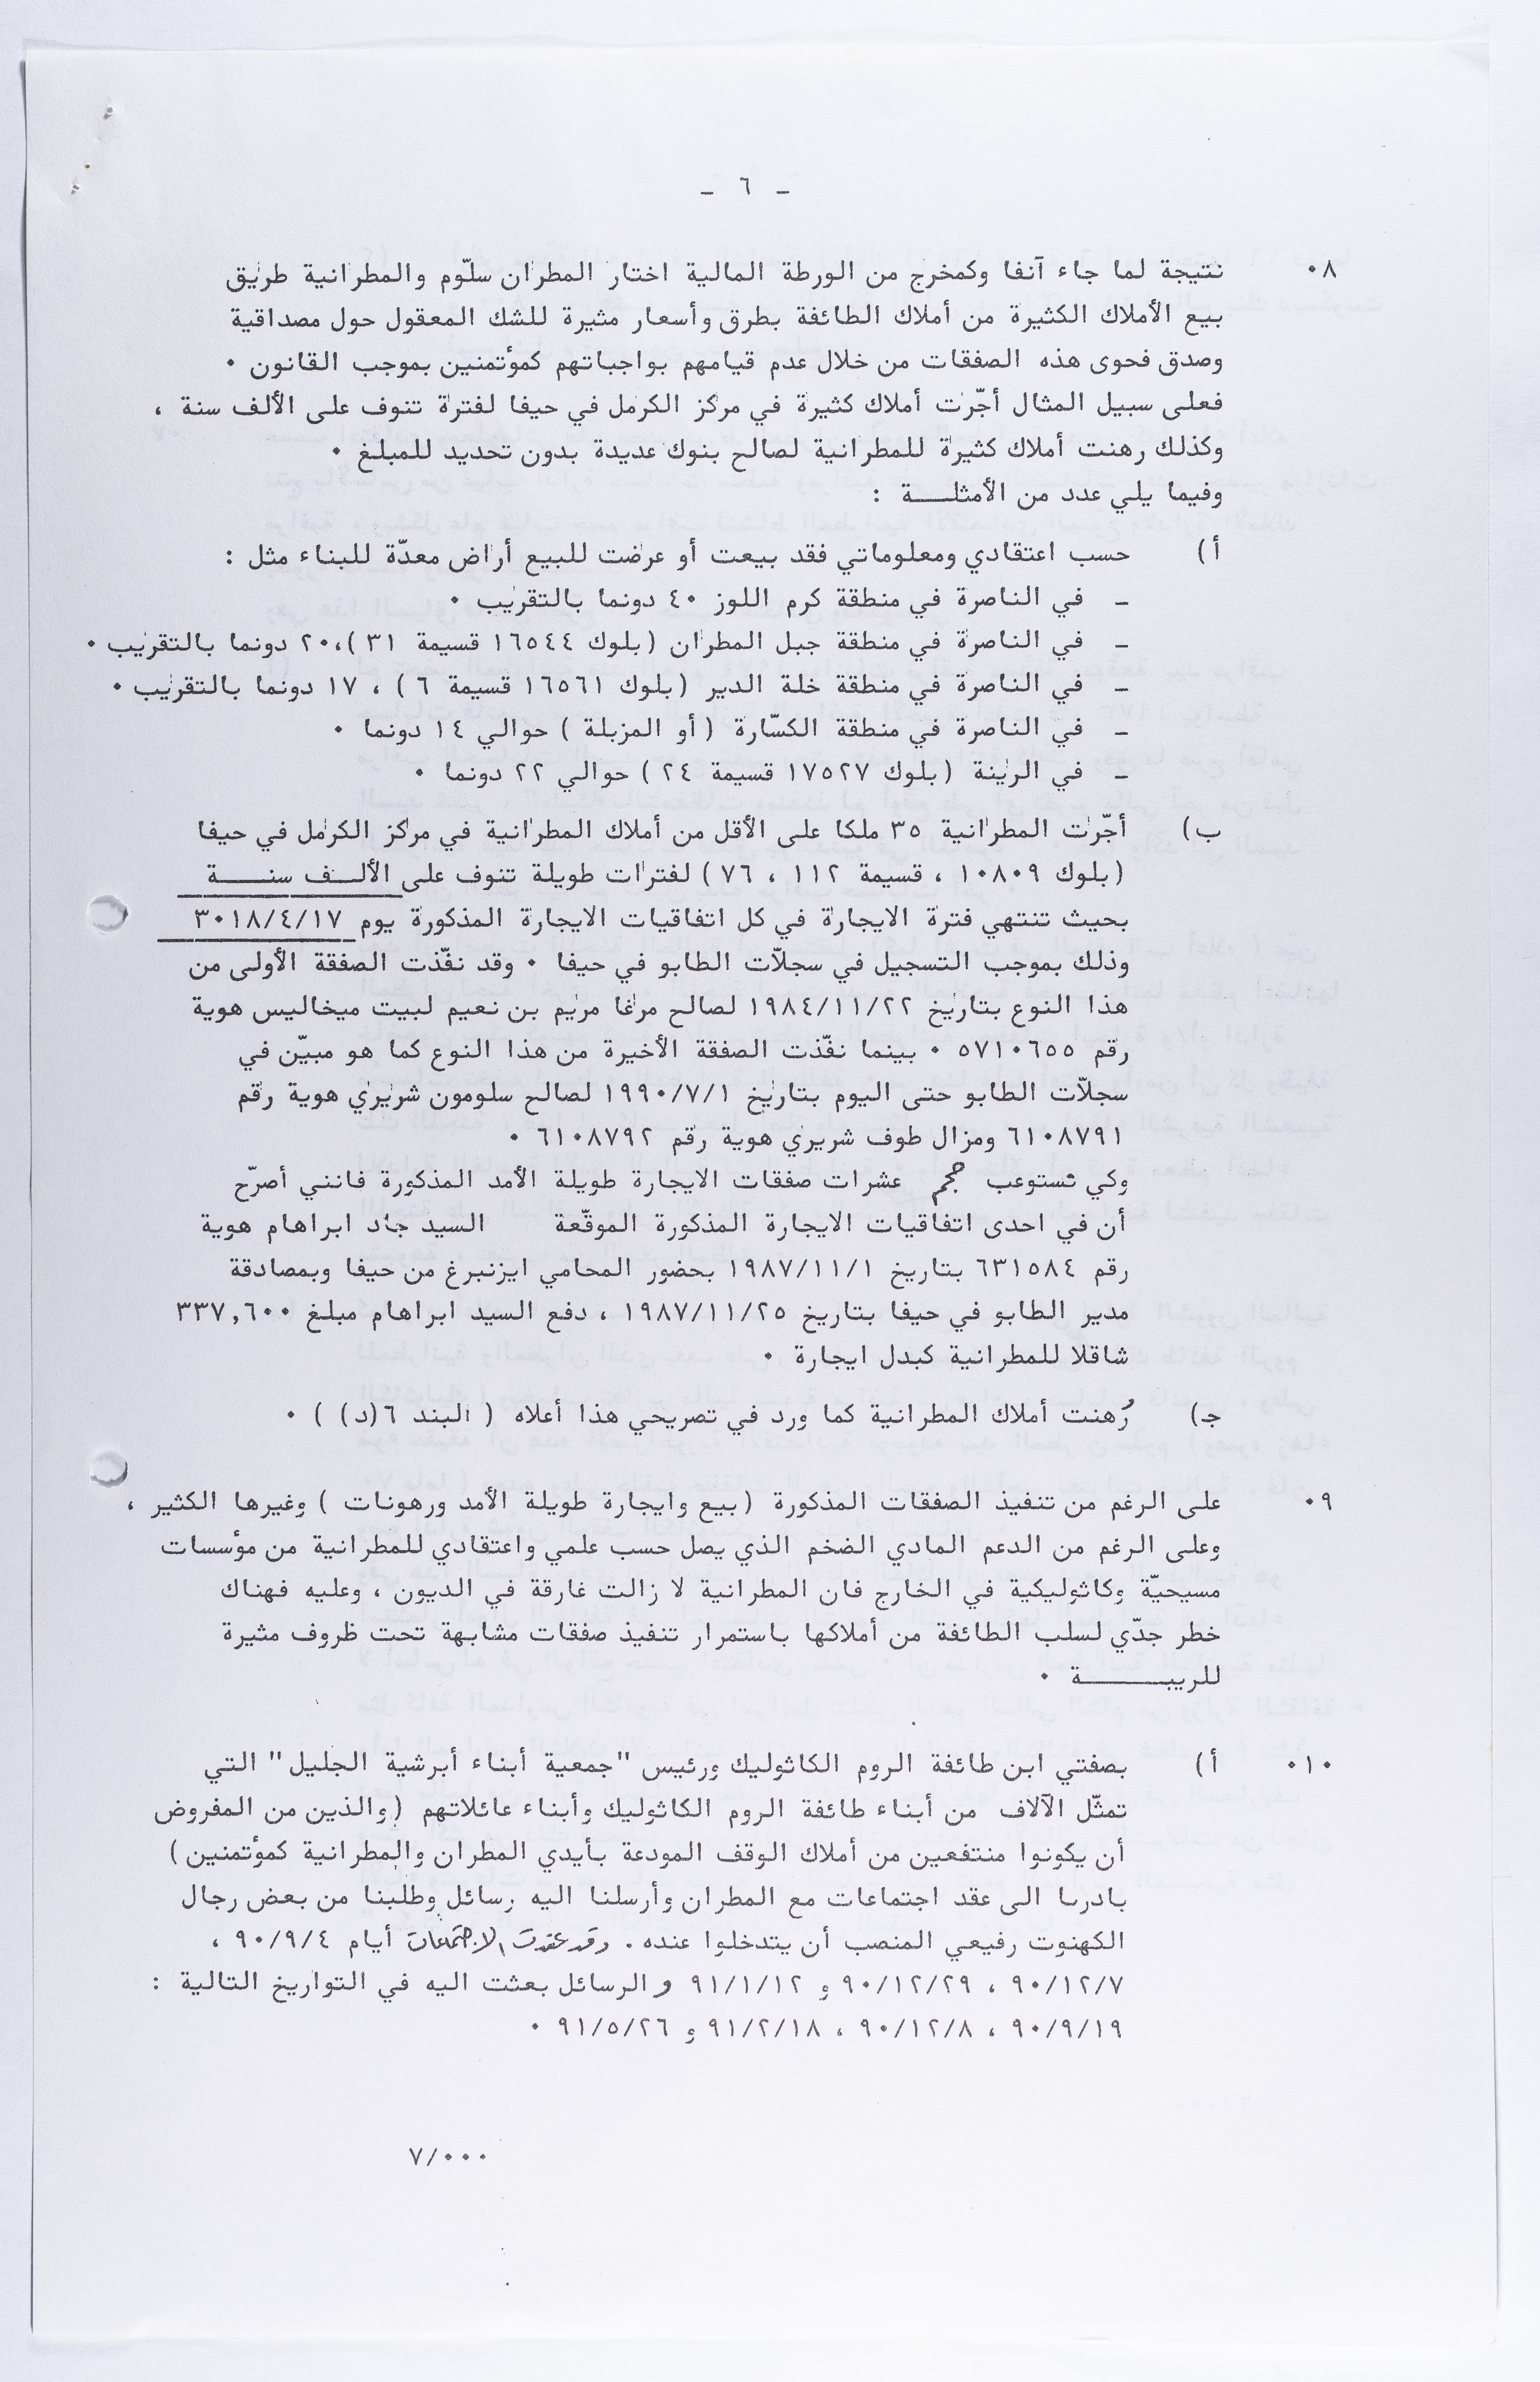 - ٦ -
٨٠ نتيجة لما جاء آنفا وكمخرج من الورطة المالية اختار المطران سلّوم والمطرانية طريق
بيع الأملاك الكثيرة من أملاك الطائفة بطرق وأسعار مثيرة للشك المعقول حول مصداقية
وصدق فحوى هذه الصفقات من خلال عدم قيامهم بواجباتهم كمؤتمنين بموجب القانون ٠
فعلى سبيل المثال أجّرت أملاك كثيرة في مركز الكرمل في حيفا لفترة تنوف على الألف سنة ،
وكذلك رهنت أملاك كثيرة للمطرانية لصالح بنوك عديدة بدون تحديد للمبلغ ٠
وفيما يلي عدد من الأمثلـــة :
أ) حسب اعتقادي ومعلوماتي فقد بيعت أو عرضت للبيع أراض معدّة للبناء مثل :
- في الناصرة في منطقة كرم اللوز ٤٠ دونما بالتقريب ٠
- في الناصرة في منطقة جبل المطران (بلوك ١٦٥٤٤ قسيمة ٣١)،٢٠ دونما بالتقريب ٠
- في الناصرة في منطقة خلة الدير (بلوك ١٦٥٦١ قسيمة ٦) ، ١٧ دونما بالتقريب ٠
- في الناصرة في منطقة الكسّارة (أو المزبلة) حوالي ١٤ دونما ٠
- في الرينة (بلوك ١٧٥٢٧ قسيمة ٢٤) حوالي ٢٢ دونما ٠
ب) أجّرت المطرانية ٣٥ ملكا على الأقل من أملاك المطرانية في مركز الكرمل في حيفا
(بلوك ١٠٨٠٩ ، قسيمة ١١٢ ، ٧٦) لفترات طويلة تنوف على الألــف سنـــــة
بحيث تنتهي فترة الايجارة في كل اتفاقيات الايجارة المذكورة يوم ٣٠١٨/٤/١٧
وذلك بموجب التسجيل في سجلاّت الطابو في حيفا ٠ وقد نفّذت الصفقة الأولى من
هذا النوع بتاريخ ١٩٨٤/١١/٢٢ لصالح مرغا مريم بن نعيم لبيت ميخاليس هوية
رقم ٥٧١٠٦٥٥ ٠ بينما نفّذت الصفقة الأخيرة من هذا النوع كما هو مبيّن في
سجلاّت الطابو حتى اليوم بتاريخ ١٩٩٠/٧/١ لصالح سلومون شريري هوية رقم
٦١٠٨٧٩١ ومزال طوف شريري هوية رقم ٦١٠٨٧٩٢ ٠
وكي تستوعب حجم عشرات صفقات الايجارة طويلة الأمد المذكورة فانني أصرّح
أن في احدى اتفاقيات الايجارة المذكورة الموقّعة السيد جاد ابراهام هوية
رقم ٦٣١٥٨٤ بتاريخ ١٩٨٧/١١/١ بحضور المحامي ايزنبرغ من حيفا وبمصادقة
مدير الطابو في حيفا بتاريخ ١٩٨٧/١١/٢٥ ، دفع السيد ابراهام مبلغ ٣٣٧,٦٠٠
شاقلا للمطرانية كبدل ايجارة ٠
جـ) رُهنت أملاك المطرانية كما ورد في تصريحي هذا أعلاه (البند ٦(د)) ٠
٩٠ على الرغم من تنفيذ الصفقات المذكورة (بيع وايجارة طويلة الأمد ورهونات) وغيرها الكثير ،
وعلى الرغم من الدعم المادي الضخم الذي يصل حسب علمي واعتقادي للمطرانية من مؤسسات
مسيحيّة وكاثوليكية في الخارج فان المطرانية لا زالت غارقة في الديون ، وعليه فهناك
خطر جدّي لسلب الطائفة من أملاكها باستمرار تنفيذ صفقات مشابهة تحت ظروف مثيرة
للريبـــــــــة ٠
١٠٠ أ) بصفتي ابن طائفة الروم الكاثوليك ورئيس "جمعية أبناء أبرشية الجليل" التي
تمثّل الآلاف من أبناء طائفة الروم الكاثوليك وأبناء عائلاتهم (والذين من المفروض
أن يكونوا منتفعين من أملاك الوقف المودعة بأيدي المطران والمطرانية كمؤتمنين)
بادرنا الى عقد اجتماعات مع المطران وأرسلنا اليه رسائل وطلبنا من بعض رجال
الكهنوت رفيعي المنصب أن يتدخلوا عنده . وقد عقدت الاجتماعات أيام ٩٠/٩/٤ ،
٩٠/١٢/٧ ، ٩٠/١٢/٢٩ و ٩١/١/١٢ و الرسائل بعثت اليه في التواريخ التالية :
٩٠/٩/١٩ ، ٩٠/١٢/٨ ، ٩١/٢/١٨ و ٩١/٥/٢٦ ٠
٧/٠٠٠